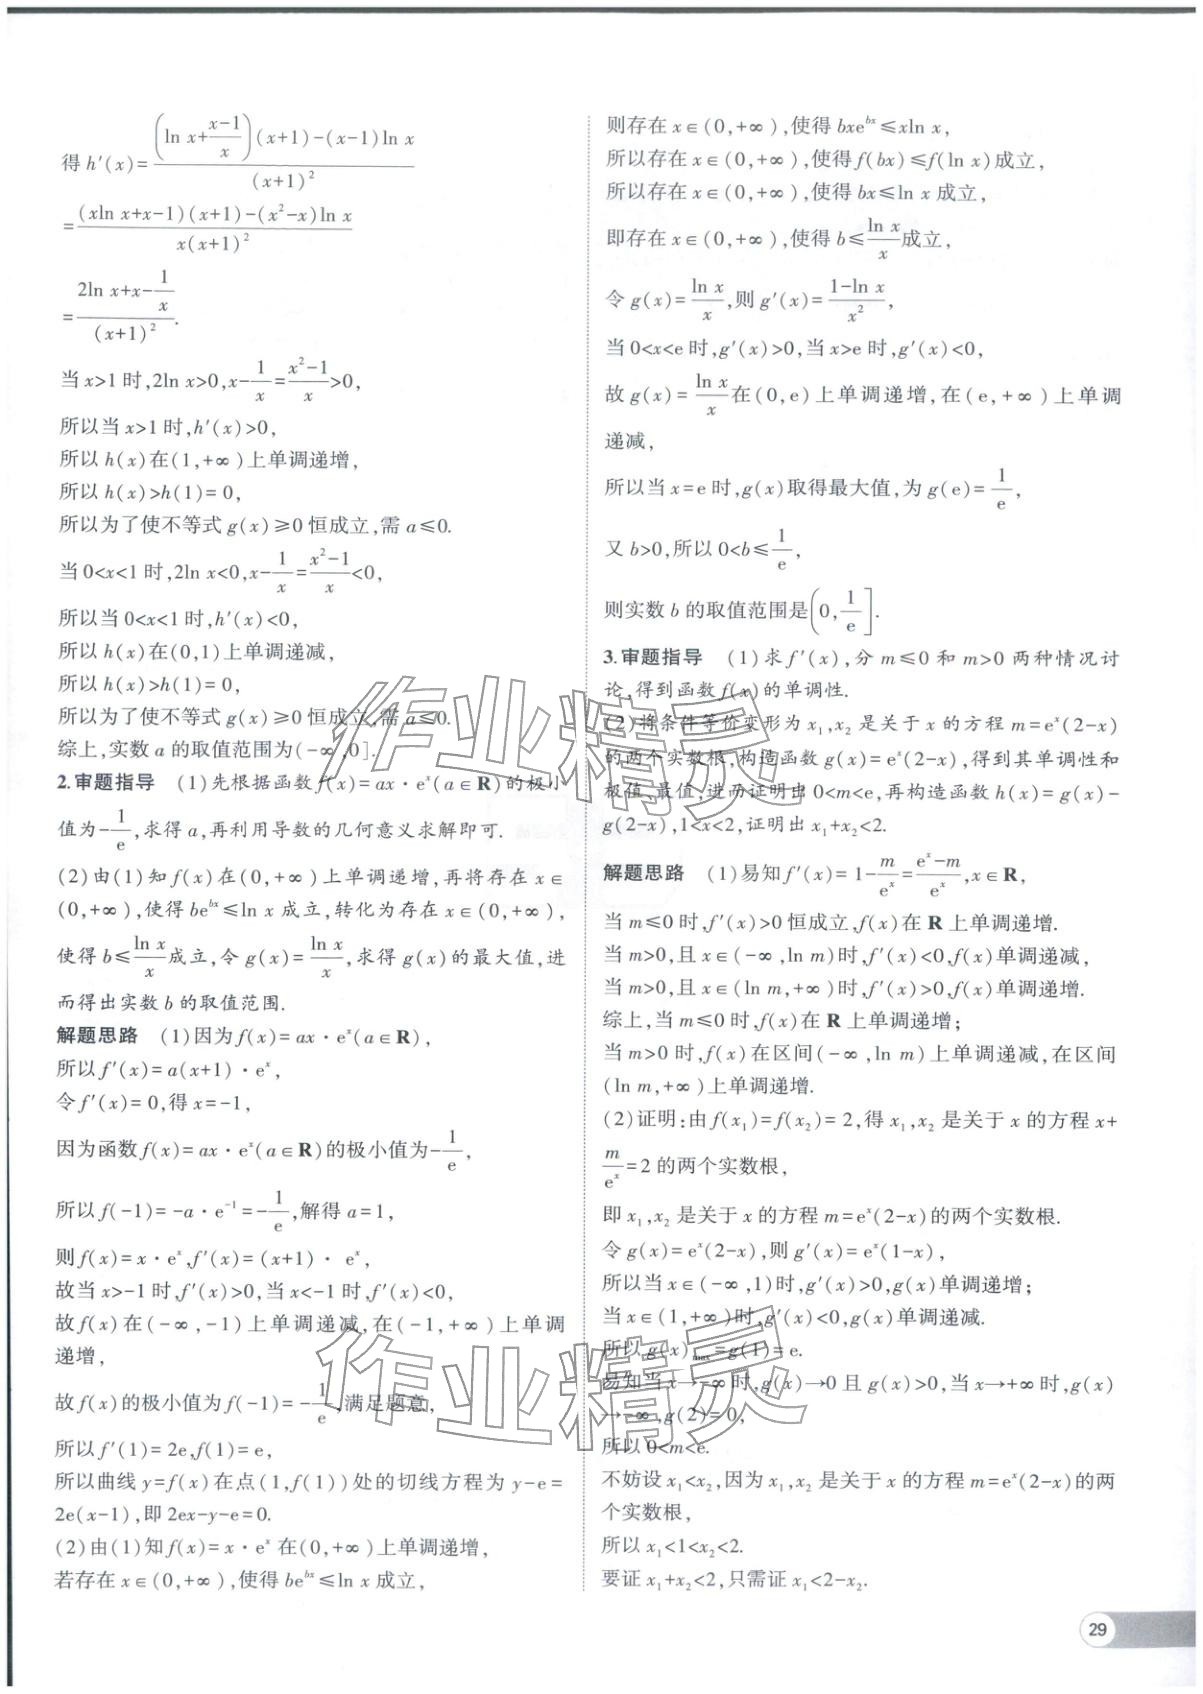 得 h′(x)=\frac{\left(ln x+\frac{x-1}{x}\right)(x+1)-(x-1)ln x}{(x+1)²}
=\frac{(xln x+x-1)(x+1)-(x²-x)ln x}{x(x+1)²}
=\frac{2ln x+x-\frac{1}{x}}{(x+1)²}.
当 x>1 时,2ln x>0,x-\frac{1}{x}=\frac{x²-1}{x}>0,
所以当 x>1 时,h′(x)>0,
所以 h(x)在(1,+∞)上单调递增,
所以 h(x)>h(1)=0,
所以为了使不等式 g(x)≥0 恒成立,需 a≤0.
当 0<x<1 时,2ln x<0,x-\frac{1}{x}=\frac{x²-1}{x}<0,
所以当 0<x<1 时,h′(x)<0,
所以 h(x)在(0,1)上单调递减,
所以 h(x)>h(1)=0,
所以为了使不等式 g(x)≥0 恒成立,需 a≤0.
综上,实数 a 的取值范围为(-∞,0].
2.审题指导 (1)先根据函数 f(x)=ax·eˣ(a∈R)的极小
值为-\frac{1}{e},求得 a,再利用导数的几何意义求解即可.
(2)由(1)知 f(x)在(0,+∞)上单调递增,再将存在 x∈
(0,+∞),使得 be^{bx}≤ln x 成立,转化为存在 x∈(0,+∞),
使得 b≤\frac{ln x}{x}成立,令 g(x)=\frac{ln x}{x},求得 g(x)的最大值,进
而得出实数 b 的取值范围.
解题思路 (1)因为 f(x)=ax·eˣ(a∈R),
所以 f′(x)=a(x+1)·eˣ,
令 f′(x)=0,得 x=-1,
因为函数 f(x)=ax·eˣ(a∈R)的极小值为-\frac{1}{e},
所以 f(-1)=-a·e⁻¹=-\frac{1}{e},解得 a=1,
则 f(x)=x·eˣ,f′(x)=(x+1)·eˣ,
故当 x>-1 时,f′(x)>0,当 x<-1 时,f′(x)<0,
故 f(x)在(-∞,-1)上单调递减,在(-1,+∞)上单调
递增,
故 f(x)的极小值为 f(-1)=-\frac{1}{e},满足题意,
所以 f′(1)=2e,f(1)=e,
所以曲线 y=f(x)在点(1,f(1))处的切线方程为 y-e=
2e(x-1),即 2ex-y-e=0.
(2)由(1)知 f(x)=x·eˣ 在(0,+∞)上单调递增,
若存在 x∈(0,+∞),使得 be^{bx}≤ln x 成立,
则存在 x∈(0,+∞),使得 bxe^{bx}≤xln x,
所以存在 x∈(0,+∞),使得 f(bx)≤f(ln x)成立,
所以存在 x∈(0,+∞),使得 bx≤ln x 成立,
即存在 x∈(0,+∞),使得 b≤\frac{ln x}{x}成立,
令 g(x)=\frac{ln x}{x},则 g′(x)=\frac{1-ln x}{x²},
当 0<x<e 时,g′(x)>0,当 x>e 时,g′(x)<0,
故 g(x)=\frac{ln x}{x}在(0,e)上单调递增,在(e,+∞)上单调
递减,
所以当 x=e 时,g(x)取得最大值,为 g(e)=\frac{1}{e},
又 b>0,所以 0<b≤\frac{1}{e},
则实数 b 的取值范围是(0,\frac{1}{e}].
3.审题指导 (1)求 f′(x),分 m≤0 和 m>0 两种情况讨
论,得到函数 f(x)的单调性.
(2)将条件等价变形为 x₁,x₂ 是关于 x 的方程 m=eˣ(2-x)
的两个实数根,构造函数 g(x)=eˣ(2-x),得到其单调性和
极值、最值,进而证明出 0<m<e,再构造函数 h(x)=g(x)-
g(2-x),1<x<2,证明出 x₁+x₂<2.
解题思路 (1)易知 f′(x)=1-\frac{m}{eˣ}=\frac{eˣ-m}{eˣ},x∈R,
当 m≤0 时,f′(x)>0 恒成立,f(x)在 R 上单调递增.
当 m>0,且 x∈(-∞,ln m)时,f′(x)<0,f(x)单调递减,
当 m>0,且 x∈(ln m,+∞)时,f′(x)>0,f(x)单调递增.
综上,当 m≤0 时,f(x)在 R 上单调递增;
当 m>0 时,f(x)在区间(-∞,ln m)上单调递减,在区间
(ln m,+∞)上单调递增.
(2)证明:由 f(x₁)=f(x₂)=2,得 x₁,x₂ 是关于 x 的方程 x+
\frac{m}{eˣ}=2 的两个实数根,
即 x₁,x₂ 是关于 x 的方程 m=eˣ(2-x)的两个实数根.
令 g(x)=eˣ(2-x),则 g′(x)=eˣ(1-x),
所以当 x∈(-∞,1)时,g′(x)>0,g(x)单调递增;
当 x∈(1,+∞)时,g′(x)<0,g(x)单调递减.
所以 g(x)ₘₐₓ=g(1)=e.
易知当 x→-∞时,g(x)→0 且 g(x)>0,当 x→+∞时,g(x)
→-∞,g(2)=0,
所以 0<m<e.
不妨设 x₁<x₂,因为 x₁,x₂ 是关于 x 的方程 m=eˣ(2-x)的两
个实数根,
所以 x₁<1<x₂<2.
要证 x₁+x₂<2,只需证 x₁<2-x₂.
作业精灵
作业精灵
29